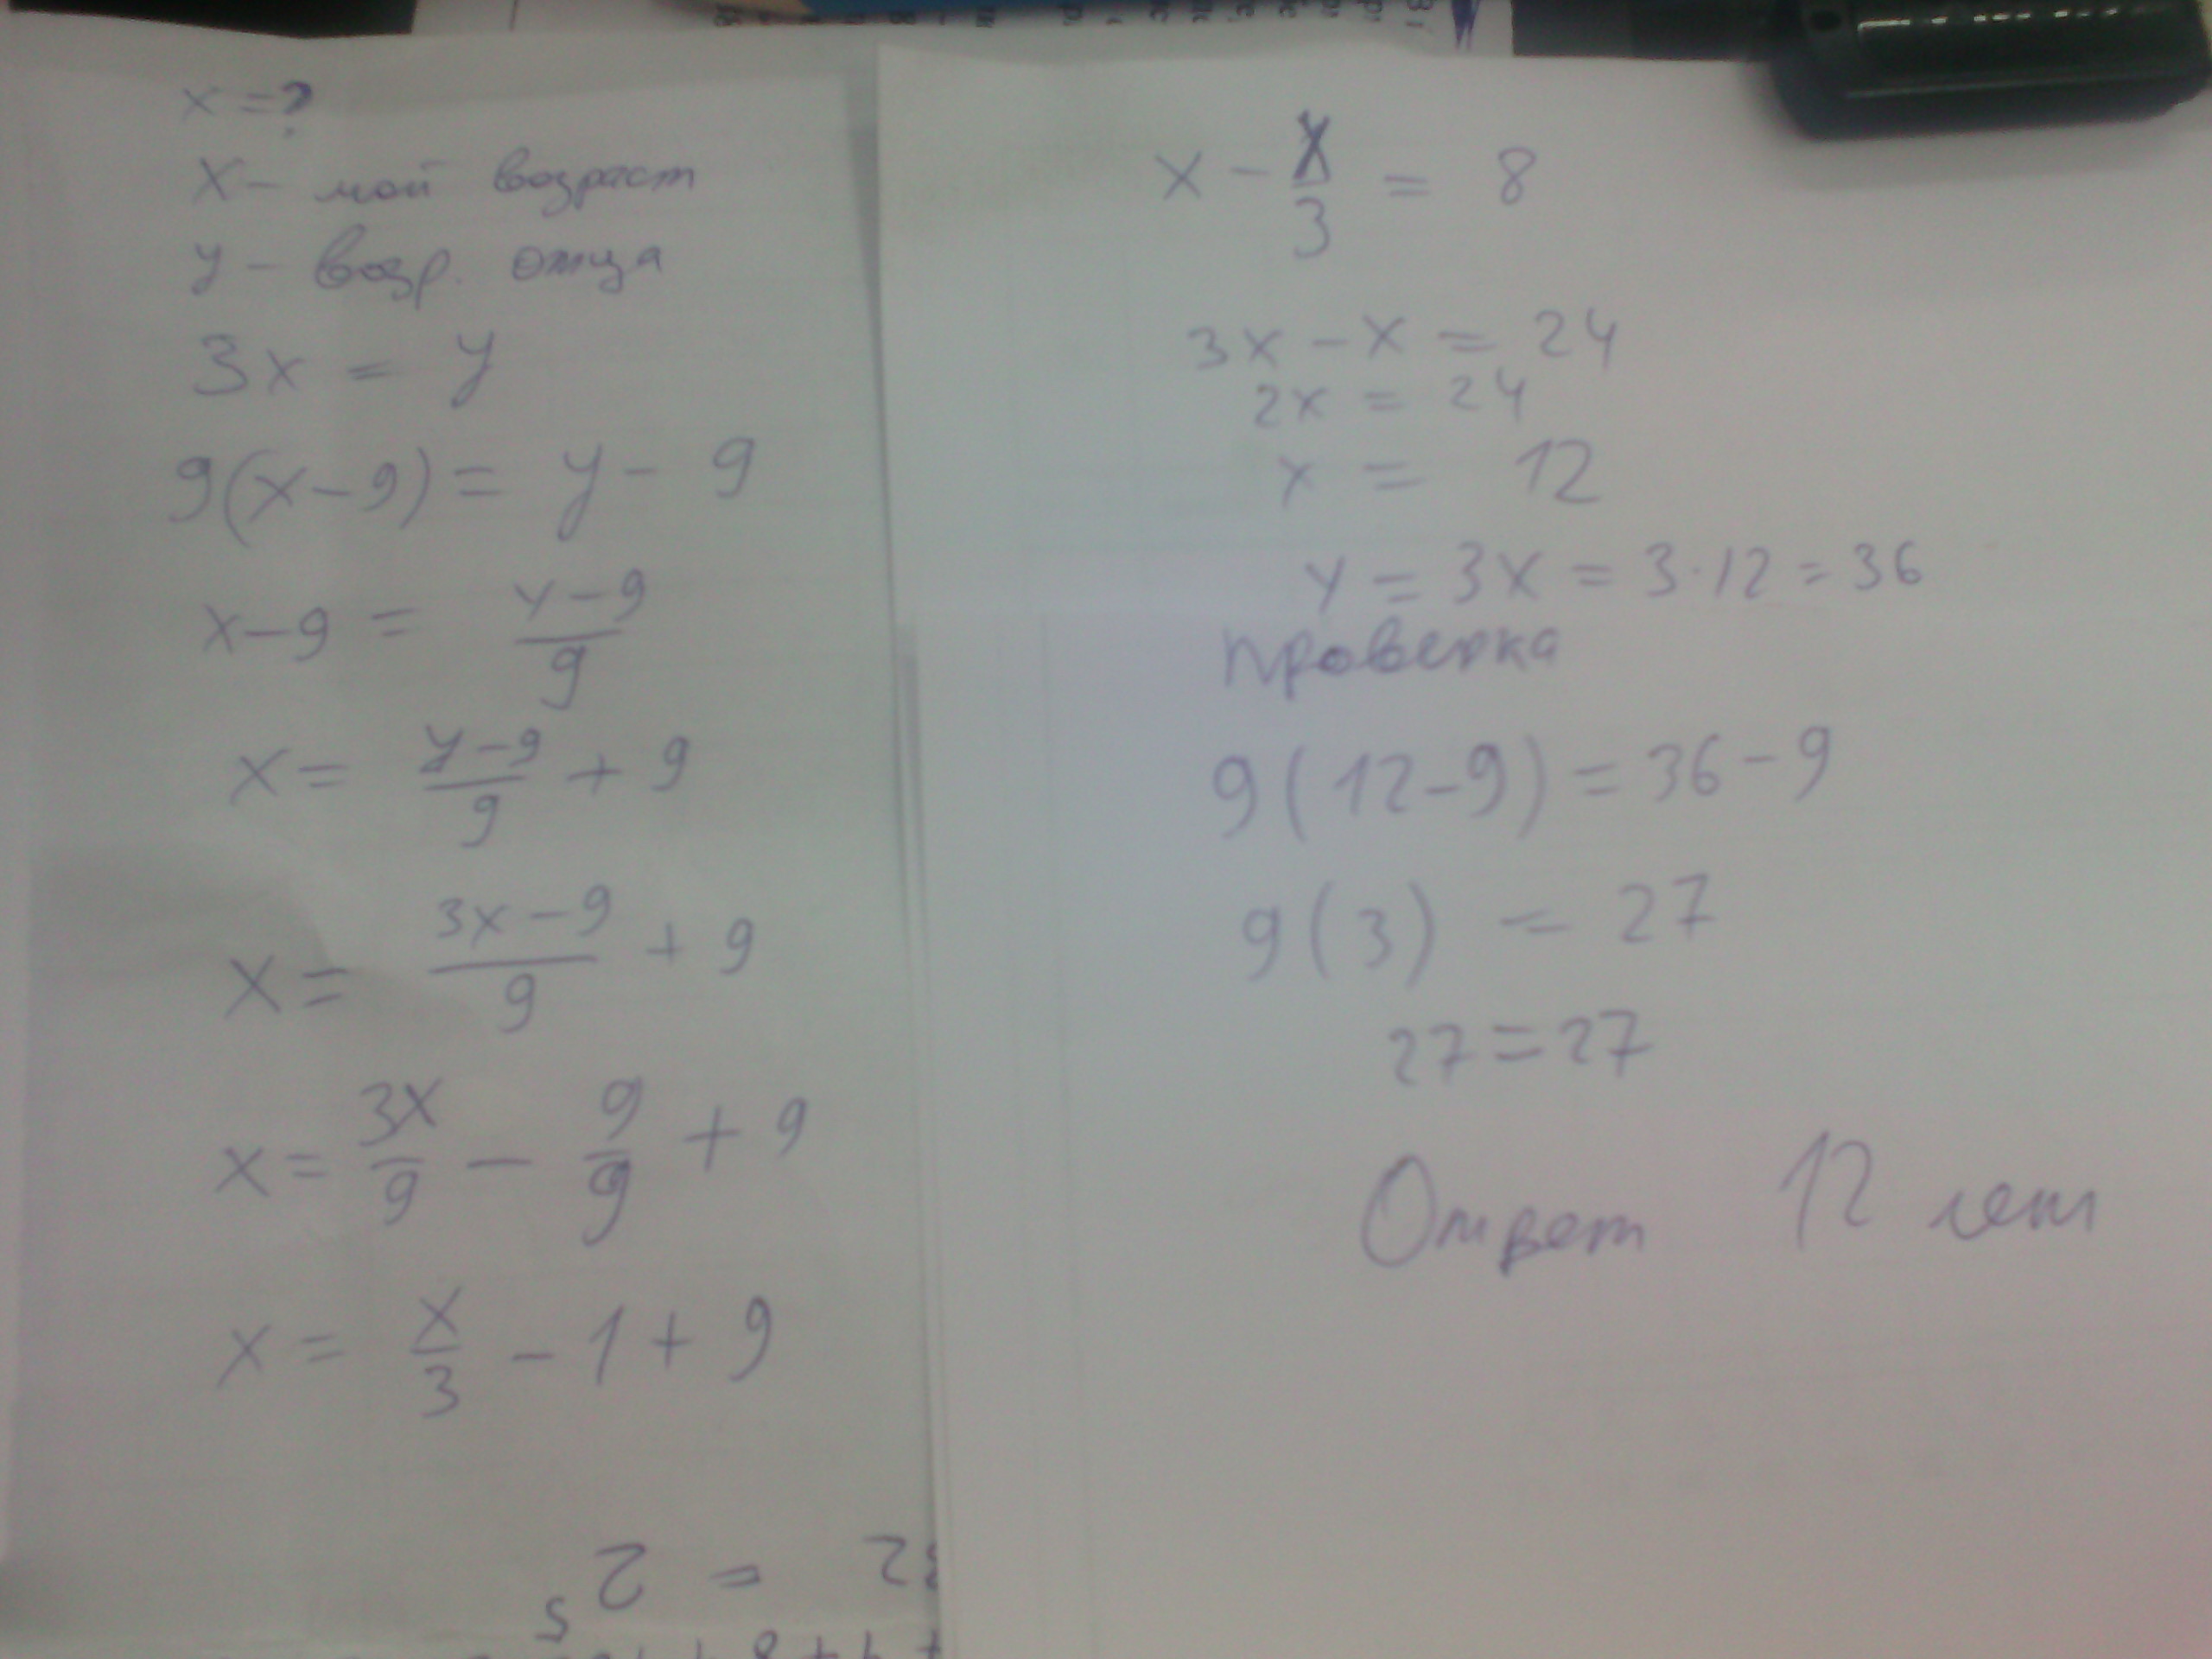 x = ?
x - мой возраст
y - возр. отца
3x = y
9(x-9) = y - 9
x-9 = (y-9)/9
x = (y-9)/9 + 9
x = (3x-9)/9 + 9
x = 3x/9 - 9/9 + 9
x = x/3 - 1 + 9
x - x/3 = 8
3x - x = 24
2x = 24
x = 12
y = 3x = 3·12 = 36
проверка
9(12-9) = 36-9
9(3) = 27
27=27
Ответ 12 лет